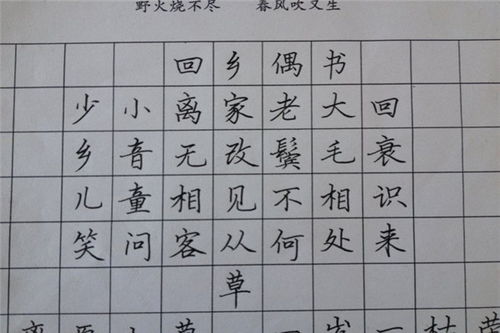 野火烧不尽 春风吹又生
回乡偶书
少小离家老大回
乡音无改鬓毛衰
儿童相见不相识
笑问客从何处来
草